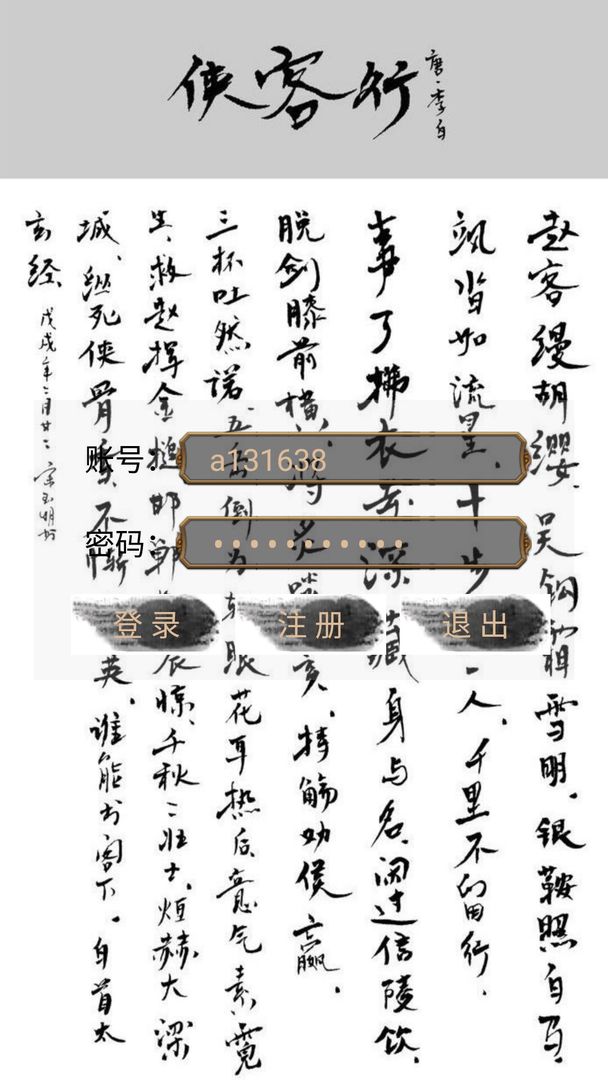 侠客行
唐·李白
赵客缦胡缨.吴钩霜雪明.银鞍照白马.
飒沓如流星.十步一人.千里不留行.
事了拂衣去深藏身与名.闲过信陵饮.
脱剑膝前横.将炙啖亥.持觞劝侯嬴.
三杯吐然诺.五岳倒为轻眼花耳热后意气素霓
生.救赵挥金槌邯郸震惊.千秋二壮士.烜赫大梁
城.纵死侠骨香不惭英.谁能书阁下.白首太
玄经.
戊戌年二月廿二
账号：
a131638
密码：
••••••••••••
登录
注册
退出